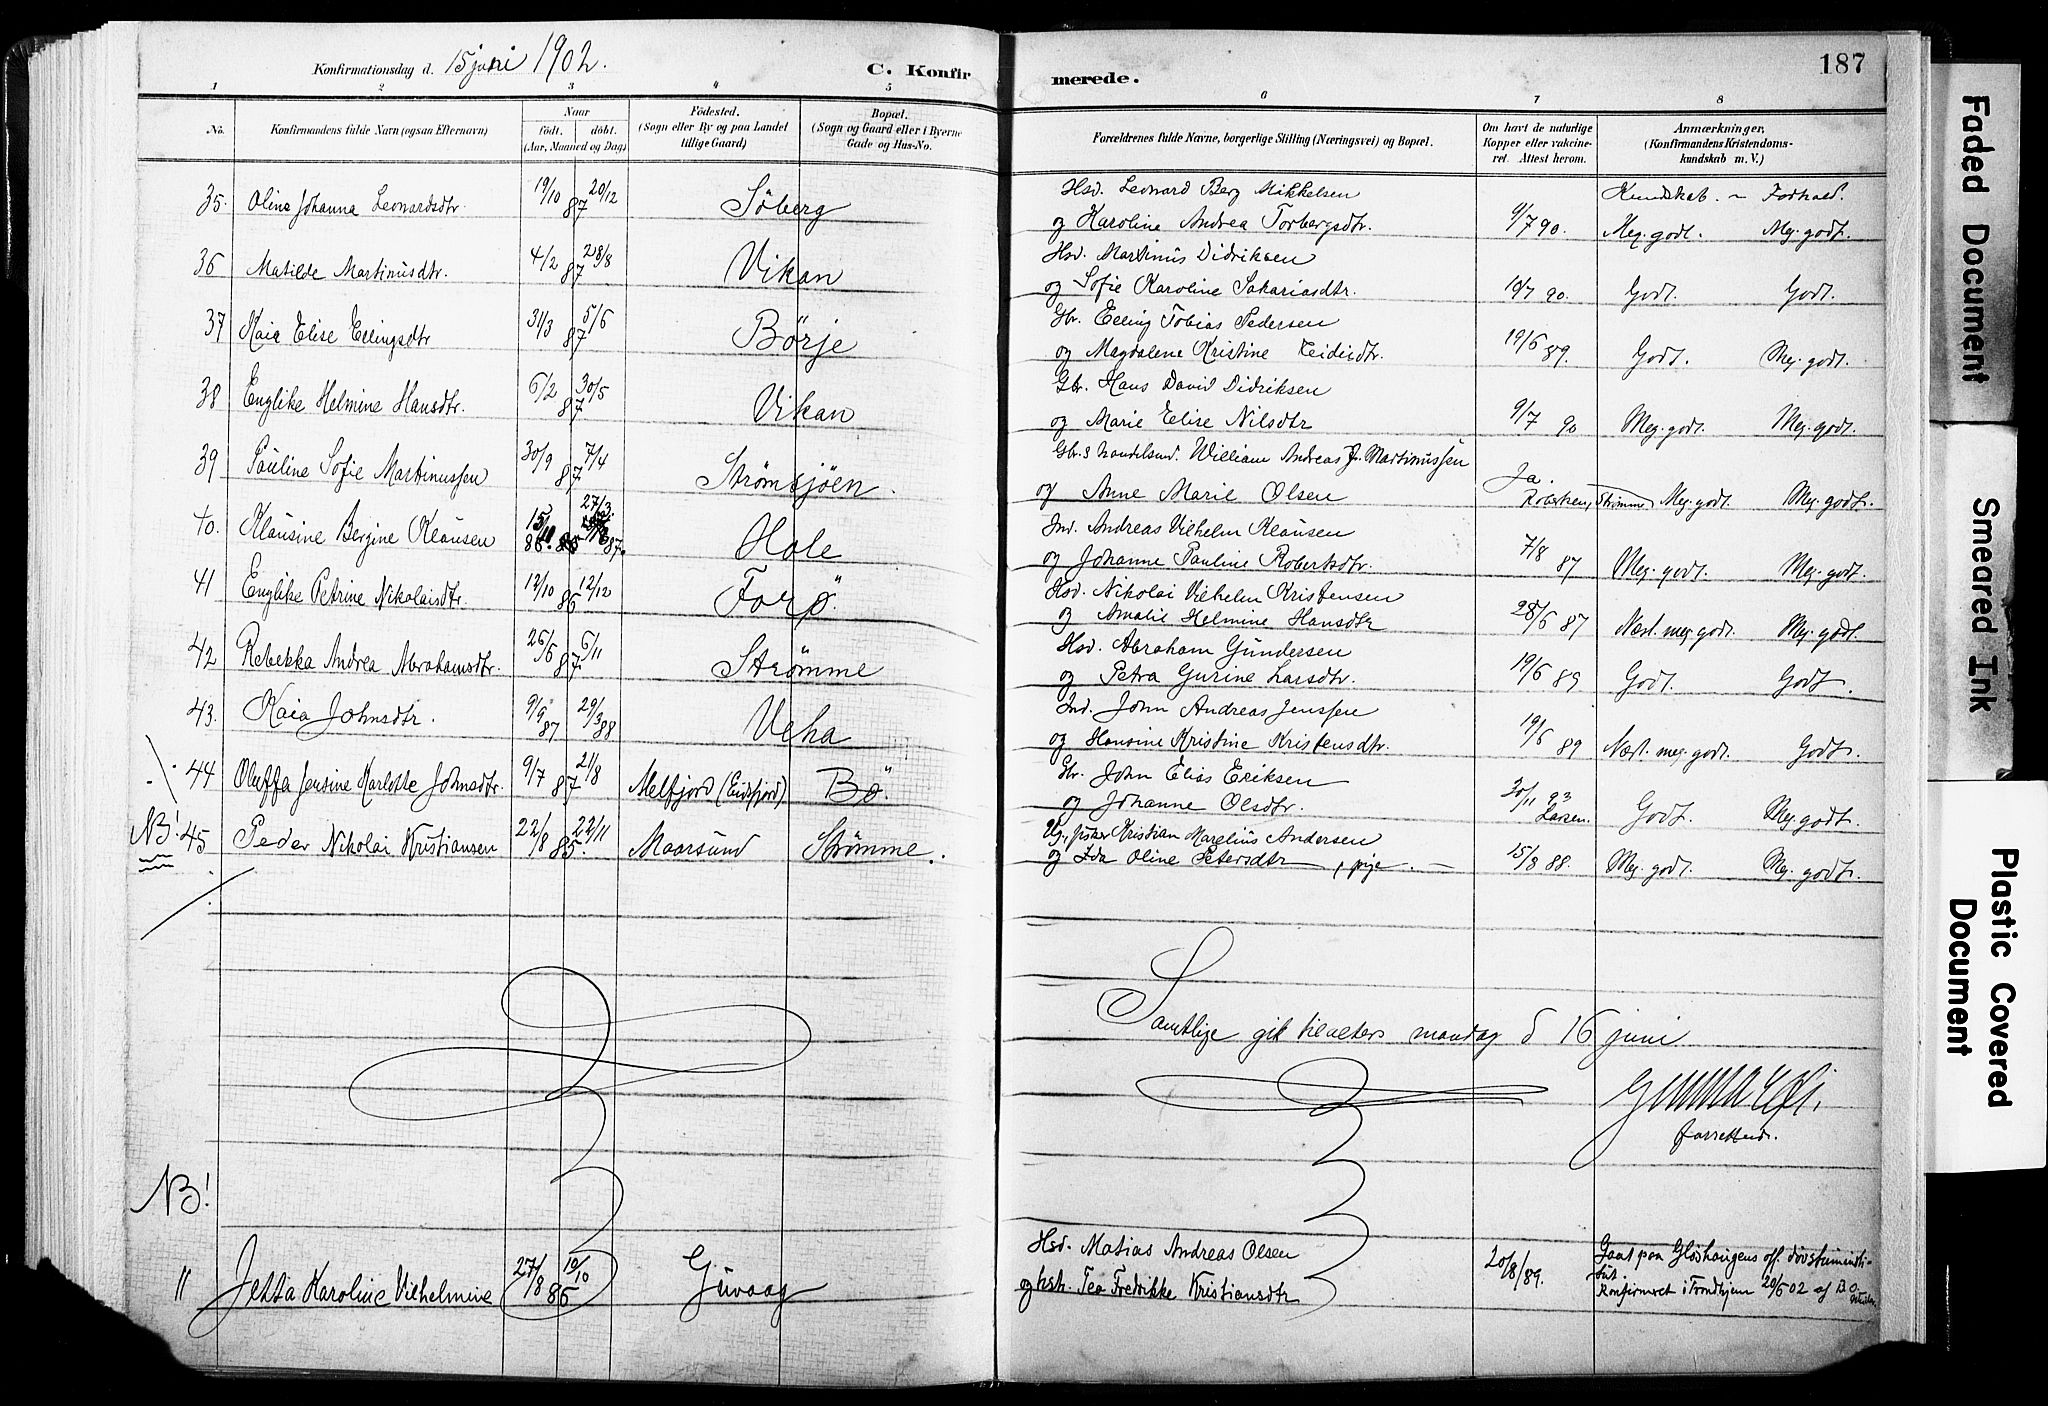 Konfirmationsdag d. 15 juni 1902.
C. Konfirmerede.
187
1 2 3 4 5 6 7 8
No. Konfirmandens fulde Navn (ogsaa Efternavn) Naar født. døbt. (Aar, Maaned og Dag) Fødested. (Sogn eller By og paa Landet tillige Gaard) Bopæl. (Sogn og Gaard eller i Byerne Gade og Hus-No. Forældrenes fulde Navne, borgerlige Stilling (Næringsvei) og Bopæl. Om havt de naturlige Kopper eller vakcineret. Attest herom. Anmærkninger, (Konfirmandens Kristendomskundskab m. V.)
Kundskab. ~ Forhold.
35. Olina Johanna Leonardsdtr. 19/10 20/12 87 Söberg Hsd. Leonard Berg Mikkelsen
og Karoline Andrea Torbergsdtr. 9/7 90. Meg. godt. Meg. godt.
36 Matilde Martinusdtr. 4/2 28/8 87 Vikan Hsd. Martinus Didriksen
og Sofie Karoline Sakariasdtr. 10/7 90. Godt. Godt.
37 Kaia Elise Ellingsdtr 31/3 5/6 87 Börje Gbr. Elling Tobias Pedersen
og Magdalene Kristine 19/6 89. Godt. Meg. godt.
38 Englike Helmine Hansdtr. 6/2 30/5 87 Vikan Gbr. Hans David Didriksen
og Marie Elise Nilsdtr 9/7 90 Meg. godt. Meg. godt.
39 Pauline Sofie Martinussen 30/9 7/4 87 Strømsjöen. Gbr. & handelsmd. William Andreas Martinussen
og Anne Marie Olsen Ja. Strømme Meg. godt. Meg. godt.
40. Klausine Bergine Klausen 15/11 86. 27/3. 87. Hole Ind. Andreas Vilhelm Klausen
og Johanne Pauline Robertsdtr. 7/8 87 Meg. godt. Meg. godt.
41 Englike Petrine Nikolaisdtr. 12/10 12/12 86 Forö. Hsd. Nikolai Vilhelm Kristensen
og Amalie Helmine Hansdtr 28/6 87 Næst. meg. godt. Meg. godt.
42 Rebekka Andrea Abrahamsdtr. 26/6 6/11 87 Strømme Hsd. Abraham Gundersen
og Petra Gurine Larsdtr. 19/6 89 Godt. Godt.
43. Kaia Johnsdtr. 9/9 87 29/3 88 Veha Ind. John Andreas Jenssen
og Hansine Kristine Kristensdtr. 19/6 89 Næst. meg. godt. Godt.
44 Oluffa Jensine Karlotte Johnsdtr. 9/7 21/8 87 Melfjord (Eidsfjord) Bö. Gbr. John Elias Eriksen
og Johanne Olsdtr. 30/11 93 Larsen. Godt. Meg. godt.
NB! 45 Peder Nikolai Kristiansen 22/8 22/11 85. Maarsund Strömme. Ug., fisker Kristian Marelius Andersen
og Ida Oline Petersdtr, pige. 15/8 88. Meg. godt. Meg. godt.
Samtlige gik til alters mandag d 16 juni
forrettend.
NB!
" Jetta Karoline Vilhelmine 27/8 10/10 86 Guvaag Hsd. Matias Andreas Olsen
og hstr. Tea Fredrikke Kristiansdtr 20/8/89. Gaat paa Gløshaugens off. døvstumeinstitut.
Konfirmeret i Trondhjem 20/6 02 af B. O.
Faded Document
Smeared Ink
Plastic Covered Document